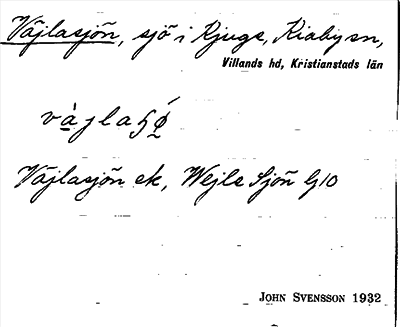 Väjlasjön, sjö i Ljuge, Kiaby sn,
Villands hd, Kristianstads län
Väjlasjön ek, Wejle Sjön
JOHN SVENSSON 1932